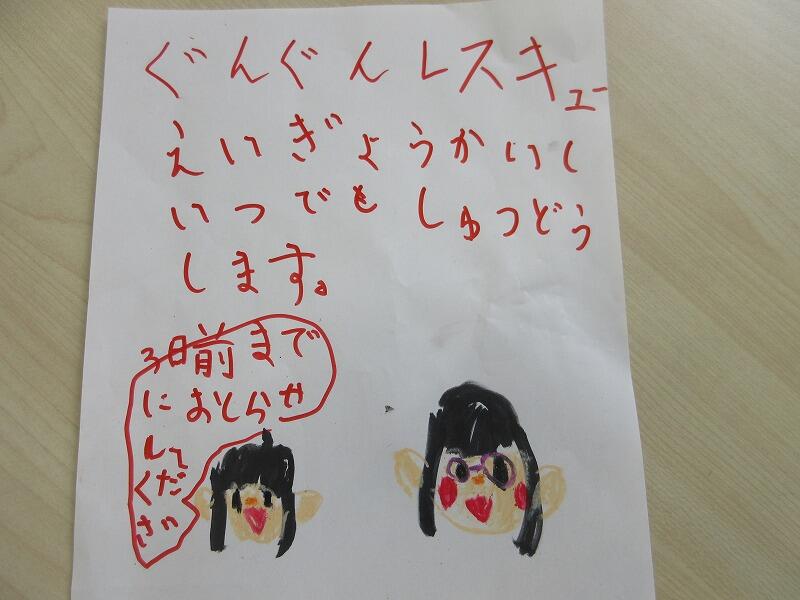 ぐんぐんレスキュー
えいぎょうかいし
いつでもしゅつどう
します。
3日前まで
におしらせ
して
くだ
さい